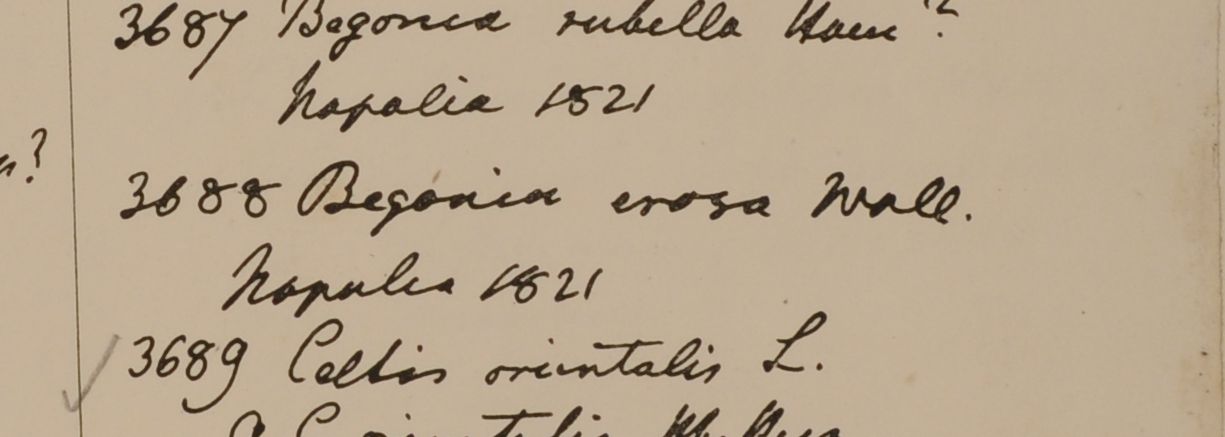 3687 Begonia rubella Ham?
Napalia 1821
3688 Begonia erosa Wall.
Napalia 1821
3689 Celtis orientalis L.